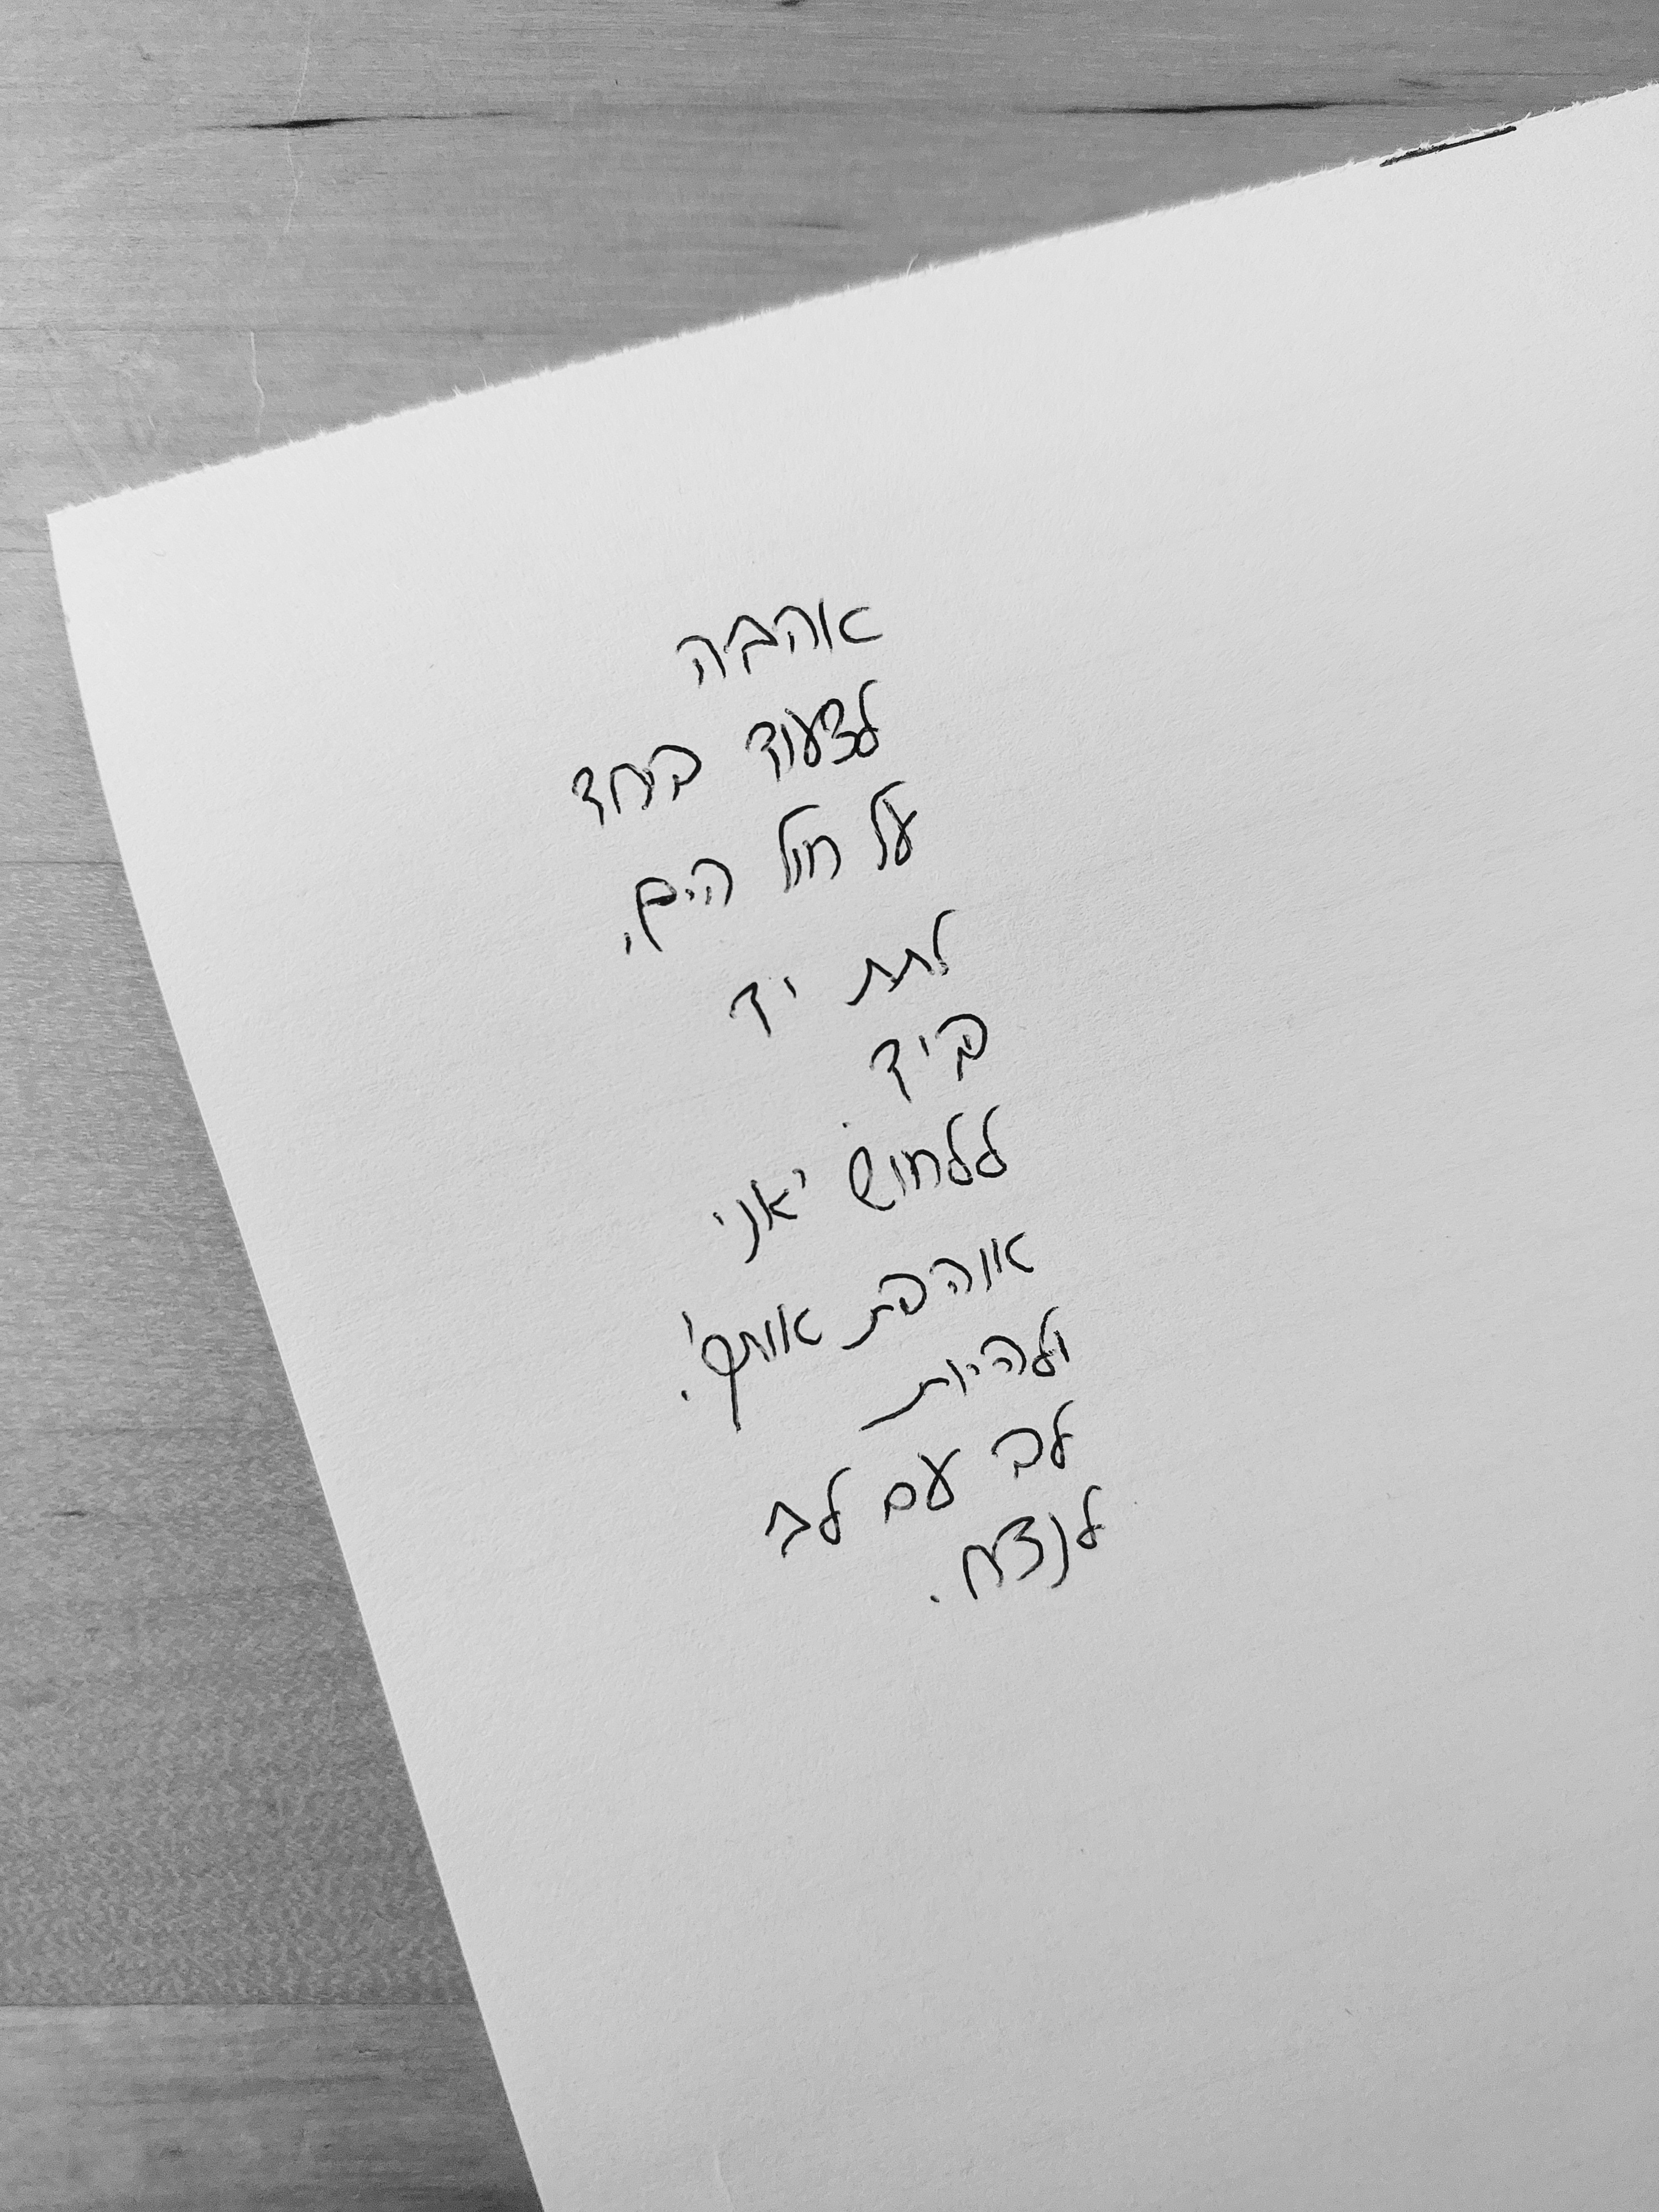 אהבה
לצעוד ביחד
על חול הים,
לתת יד
ביד.
ללחוש 'אני
אוהבת אותך'.
ולהיות
לב עם לב
לנצח.